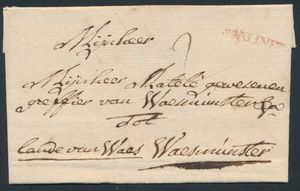 Mijnheer
Mijnheer Matelé gewesenen
greffier van Waesmunster &a
tot
Lande van Waes Waesmunster